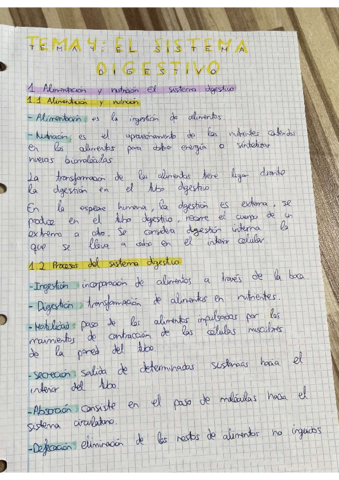 TEMA 4: EL SISTEMA
DIGESTIVO
1. Alimentación y nutrición el sistema digestivo
1.1 Alimentación y nutrición
- Alimentación: es la ingestión de alimentos
- Nutrición: es el aprovechamiento de los nutrientes contenidos
en los alimentos para obtener energía o sintetizar
nuevas biomoléculas.
La transformación de los alimentos tiene lugar durante
la digestión en el tubo digestivo.
En la especie humana, la digestión es externa, se
produce en el tubo digestivo, recorre el cuerpo de un
extremo a otro. Se considera digestión interna la
que se lleva a cabo en el interior celular.
1.2 Procesos del sistema digestivo
- Ingestión: incorporación de alimentos a través de la boca
- Digestión: transformación de alimentos en nutrientes.
- Motilidad: paso de los alimentos impulsados por los
movimientos de contracción de las células musculares
de la pared del tubo.
- Secreción: Salida de determinadas sustancias hacia el
interior del tubo
- Absorción: Consiste en el paso de moléculas hacia el
sistema circulatorio.
- Defecación: eliminación de los restos de alimentos no ingeridos